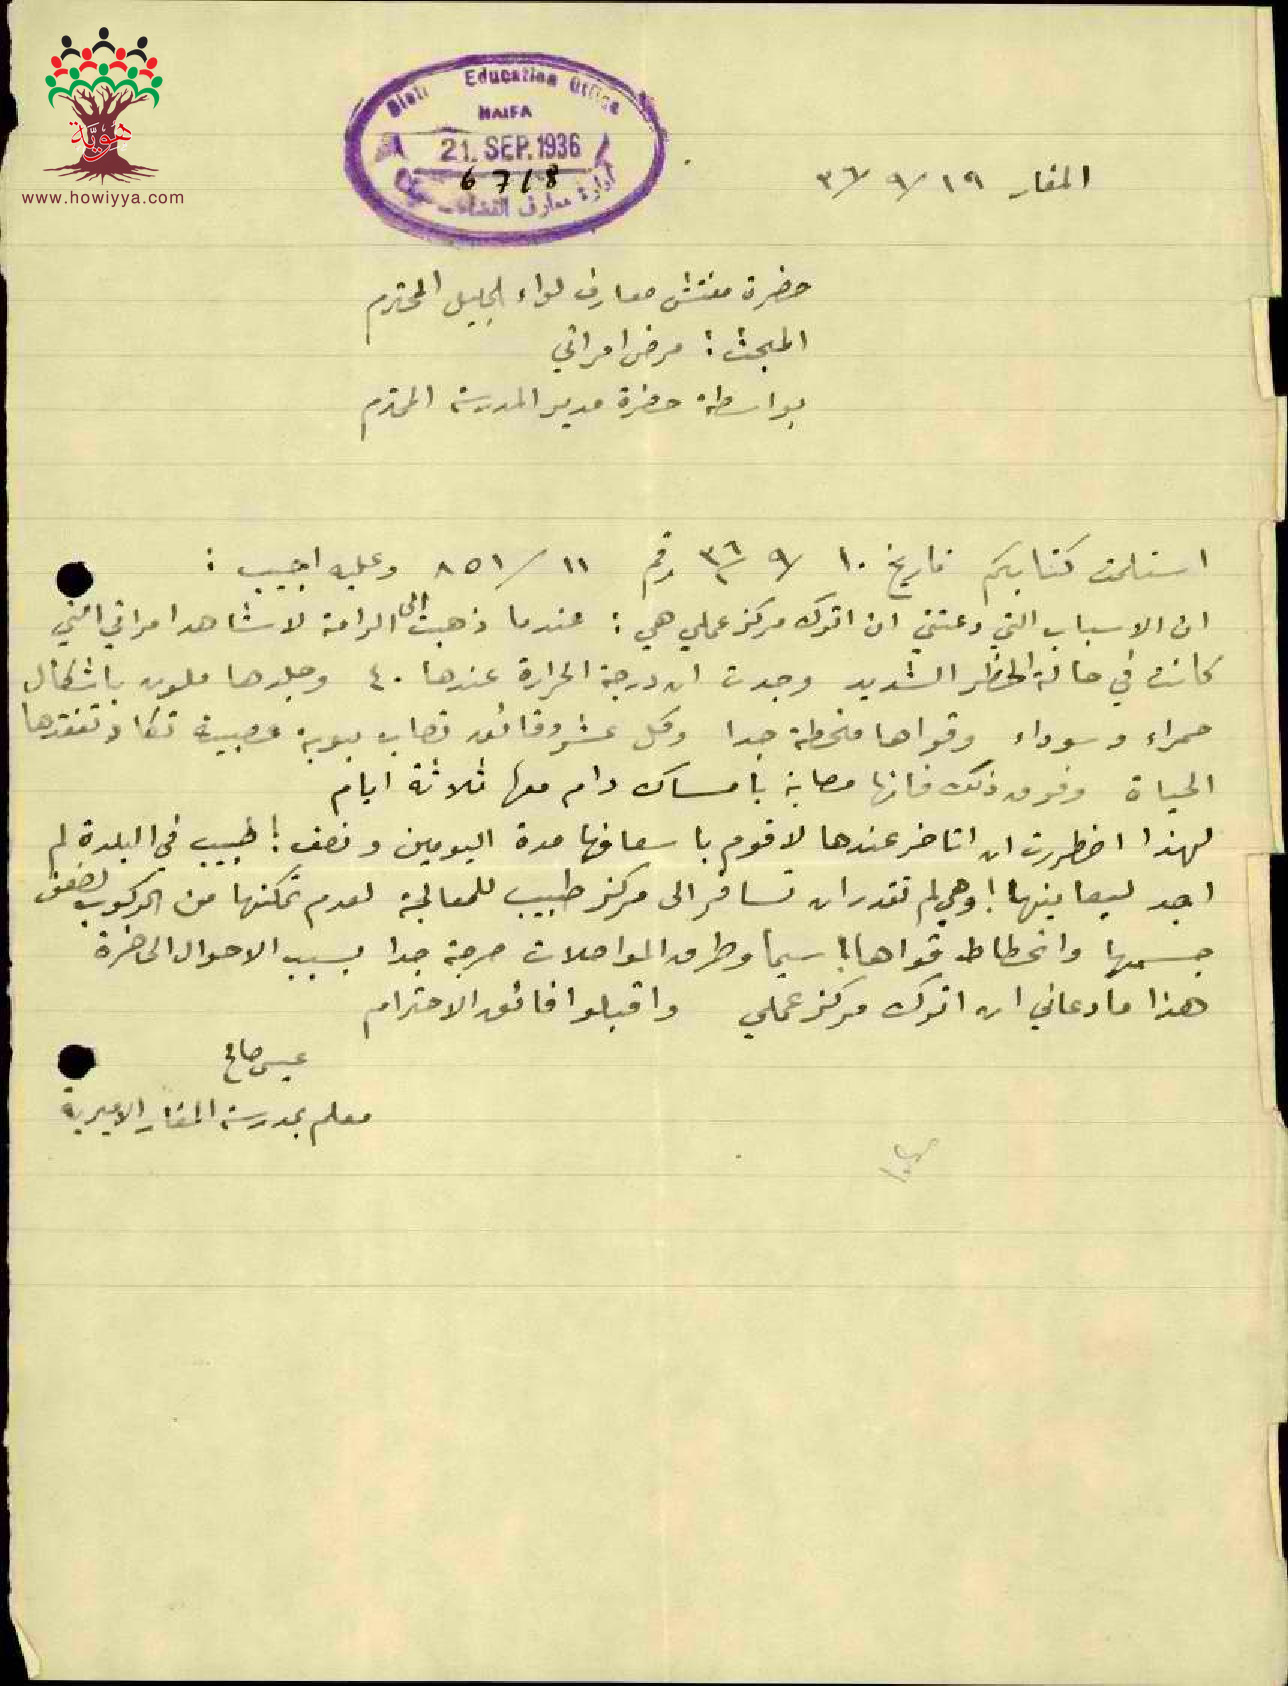 هوية
www.howiyya.com
Education Office
HAIFA
21. SEP. 1936
6718
ادارة معارف القضاء
المغار ١٩/٩/٣٦
حضرة مفتش معارف لواء الجليل المحترم
المبحث : مرض امراتي
بواسطة حضرة مدير المدرسة المحترم
استلمت كتابكم تاريخ ١٠/٩/٣٦ رقم ١١/٨٥١ وعليه اجيب :
ان الاسباب التي دعتني ان اترك مركز عملي هي : عندما ذهبت الى الرامة لاشاهد امراتي التي
كانت في حالة الخطر الشديد وجدت ان درجة الحرارة عندها ٤٠ وجلدها ملون باشكال
حمراء وسوداء وقواها منحطة جدا وكل عشر دقائق تصاب بنوبة عصبية تكاد تفقدها
الحياة وفوق ذلك فانها مصابة بامساك دام معها ثلاثة ايام
لهذا اضطررت ان اتاخر عندها لاقوم باسعافها مدة اليومين ونصف ! طبيب في البلدة لم
اجد ليعاينها ! وهي لم تقدر ان تسافر الى مركز طبيب للمعالجة لعدم تمكنها من الركوب لضعف
جسمها وانحطاط قواها ! سيما وطرق المواصلات حرجة جدا بسبب الاحوال الحاضرة
هذا ما دعاني ان اترك مركز عملي واقبلوا فائق الاحترام
عيسى صالح
معلم بمدرسة المغار الاميرية